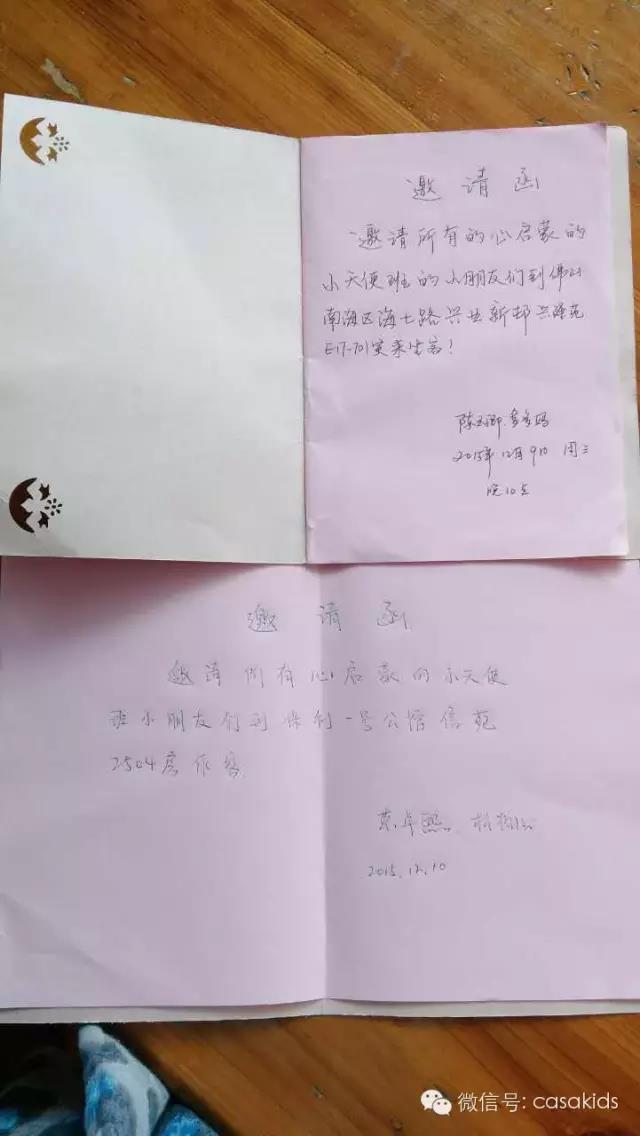 邀请函
邀请所有的心启蒙的
小天使班的小朋友们到佛山
南海区海七路兴业新邦兴
E17-701室来作客！
陈
2015年12月9日 周三
晚10点
邀请函
邀请所有心启蒙的小天使
班小朋友们到保利一号公馆信苑
2504房作客
2015.12.10
微信号: casakids